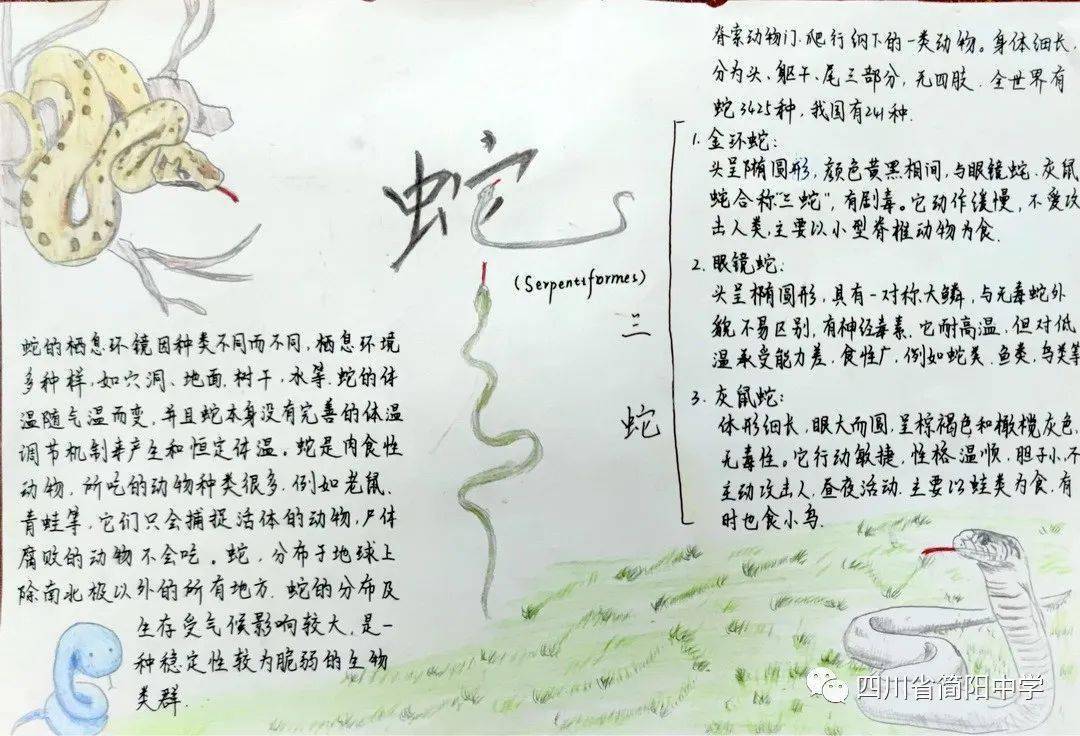 蛇
(Serpentiformes)
蛇的栖息环镜因种类不同而不同，栖息环境
多种样，如穴洞、地面、树干、水等.蛇的体
温随气温而变，并且蛇本身没有完善的体温
调节机制来产生和恒定体温。蛇是肉食性
动物，所吃的动物种类很多，例如老鼠、
青蛙等，它们只会捕捉活体的动物，尸体
腐败的动物不会吃。蛇，分布于地球上
除南北极以外的所有地方.蛇的分布及
生存受气候影响较大，是一
种稳定性较为脆弱的生物
类群.
脊索动物门.爬行纲下的一类动物。身体细长，
分为头、躯干、尾三部分，无四肢.全世界有
蛇3425种，我国有241种.
三
蛇
1.金环蛇：
头呈椭圆形，颜色黄黑相间，与眼镜蛇、灰鼠
蛇合称“三蛇”，有剧毒。它动作缓慢，不爱攻
击人类，主要以小型脊椎动物为食.
2.眼镜蛇：
头呈椭圆形，具有一对称大鳞，与无毒蛇外
貌不易区别，有神经毒素.它耐高温，但对低
温承受能力差.食性广，例如蛇类、鱼类、鸟类等
3.灰鼠蛇：
体形细长，眼大而圆，呈棕褐色和橄榄灰色，
无毒性。它行动敏捷，性格温顺，胆子小，不
主动攻击人，昼夜活动.主要以蛙类为食.有
时也食小鸟.
四川省简阳中学